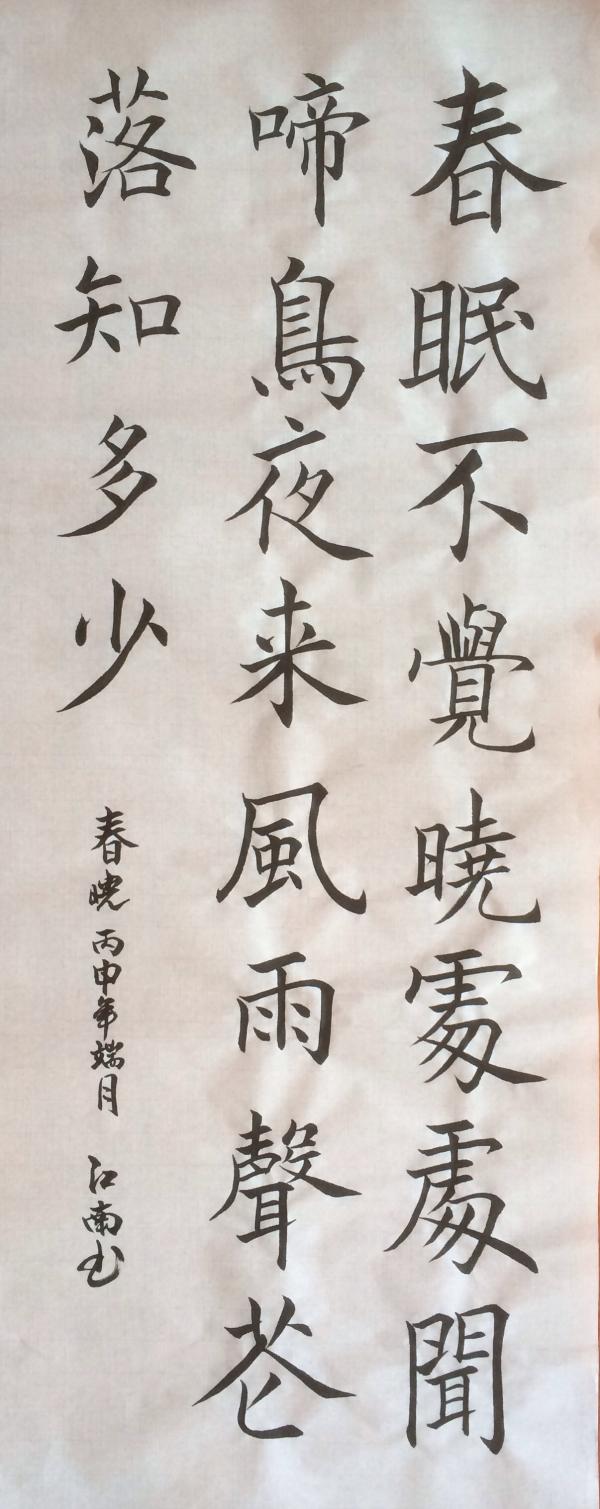 春眠不覺曉處處聞
啼鳥夜来風雨聲花
落知多少
春曉 丙申年端月 江南书